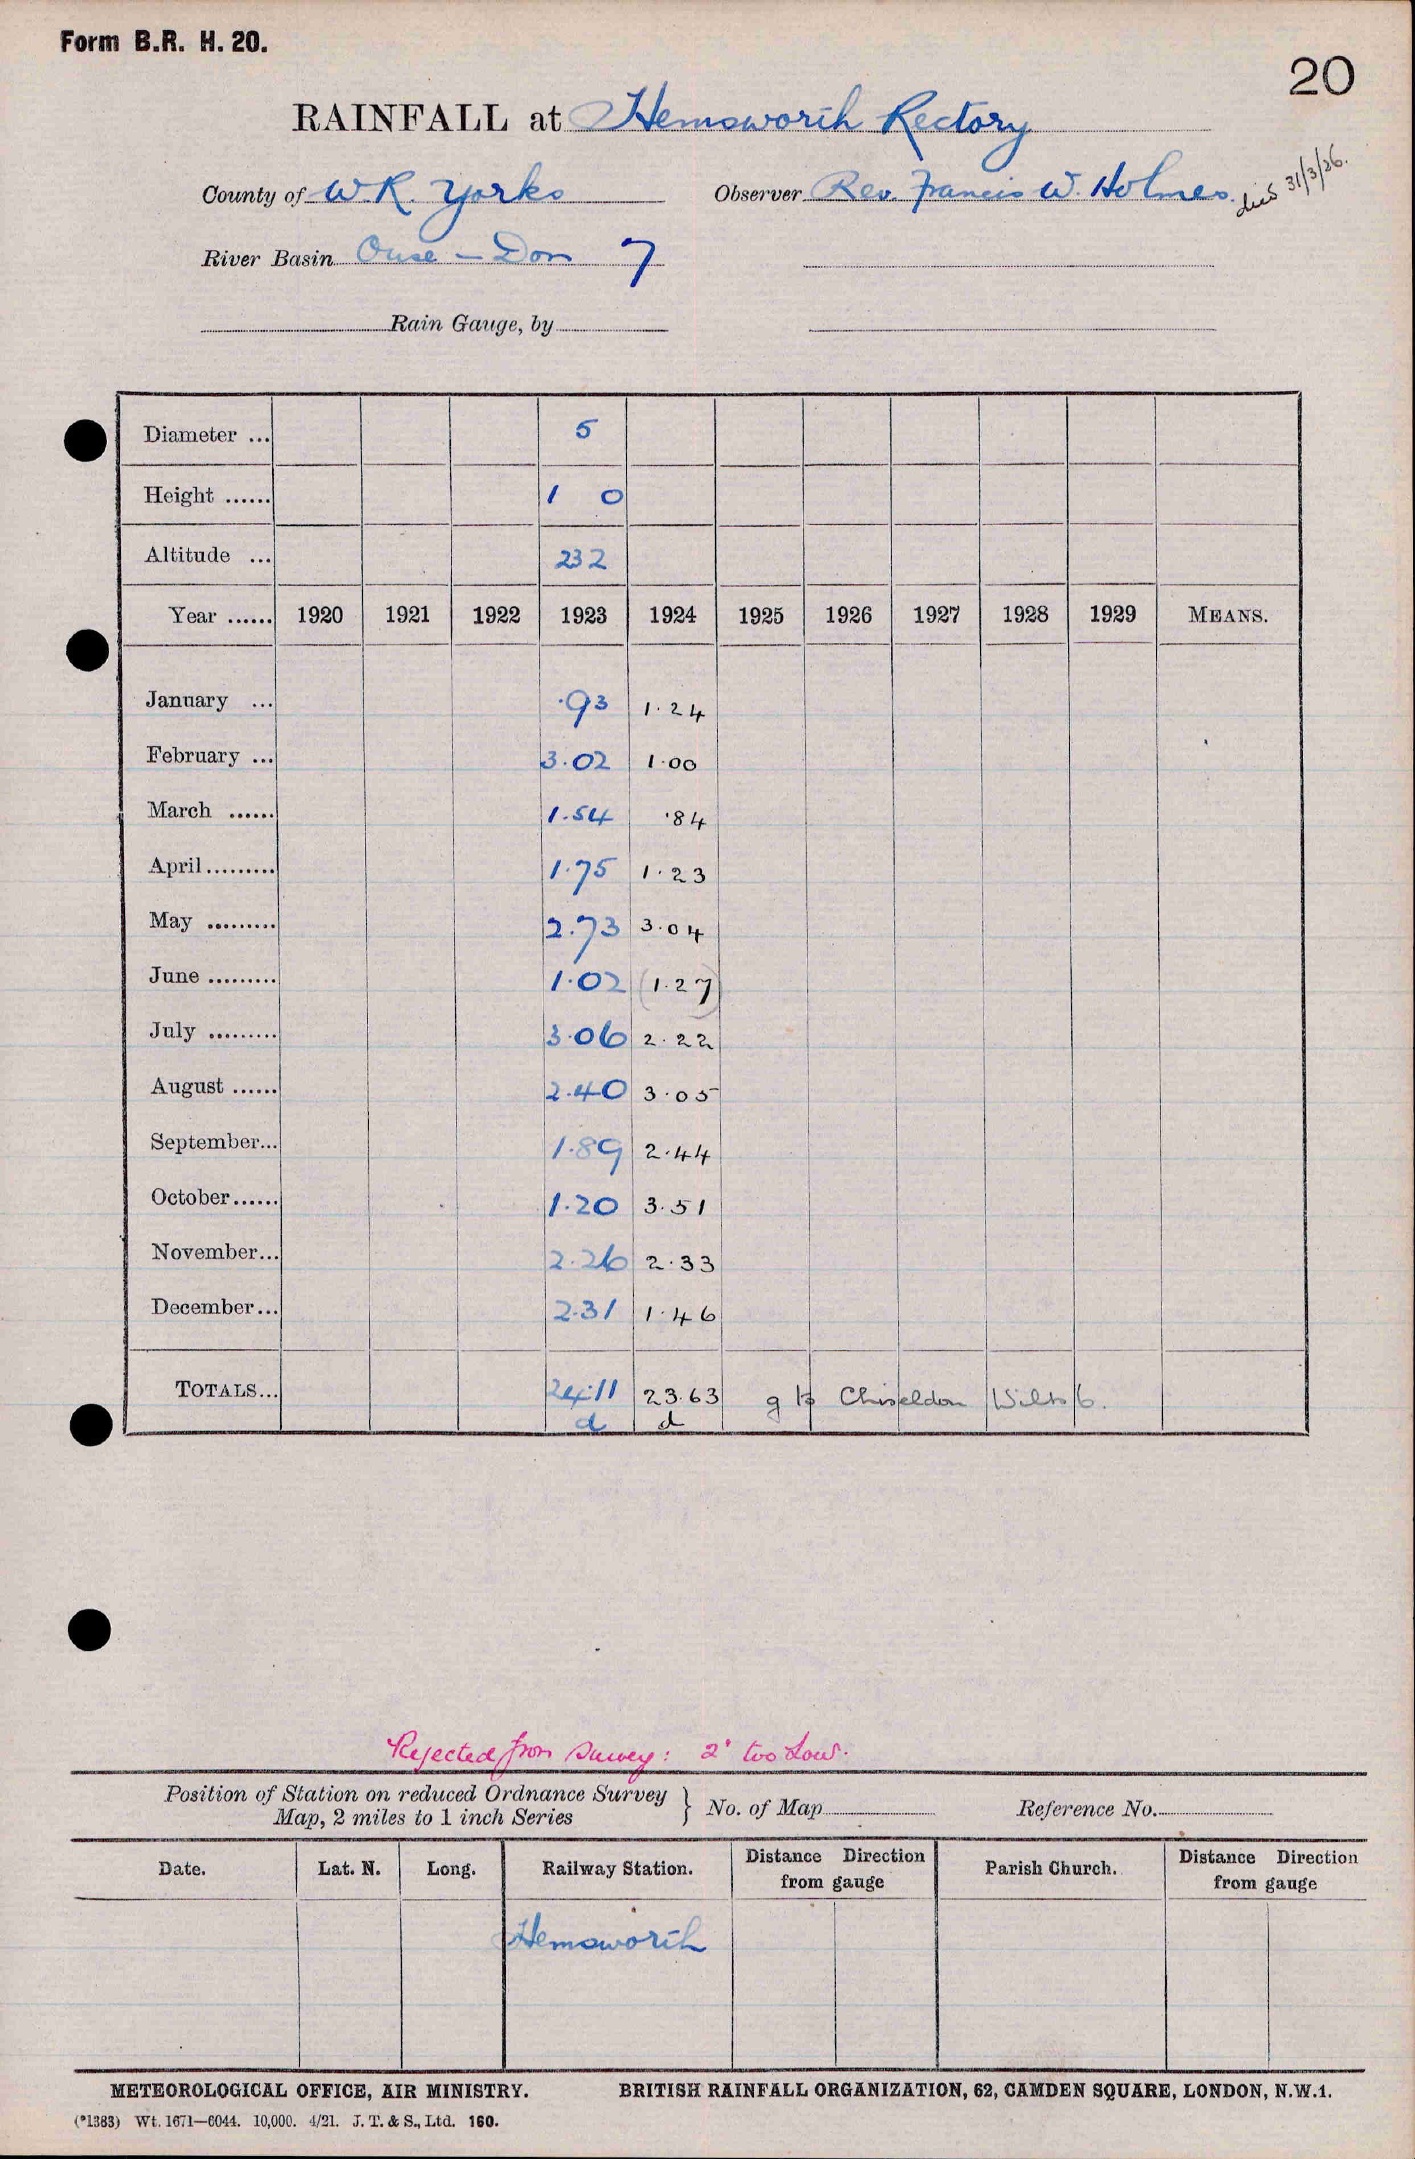 Form B.R. H. 20.
20
RAINFALL at Hemsworth Rectory
County of W.R. Yorks Observer Rev. Francis W. Holmes. died 31/3/26.
River Basin Ouse — Don 7
Rain Gauge, by
Diameter ... 5
Height ...... 1 0
Altitude ... 232
Year ...... 1920 1921 1922 1923 1924 1925 1926 1927 1928 1929 MEANS.
January ... .93 1.24
February ... 3.02 1.00
March ...... 1.54 .84
April ......... 1.75 1.23
May ......... 2.73 3.04
June ......... 1.02 (1.27)
July ......... 3.06 2.22
August ...... 2.40 3.05
September... 1.89 2.44
October ...... 1.20 3.51
November... 2.26 2.33
December... 2.31 1.46
TOTALS... 24.11 23.63 g to Chiseldon Wilts 6.
d d
Rejected from Survey: 2" too Low.
Position of Station on reduced Ordnance Survey
Map, 2 miles to 1 inch Series } No. of Map Reference No.
Date. Lat. N. Long. Railway Station. Distance Direction from gauge Parish Church. Distance Direction from gauge
Hemsworth
METEOROLOGICAL OFFICE, AIR MINISTRY. BRITISH RAINFALL ORGANIZATION, 62, CAMDEN SQUARE, LONDON, N.W.1.
(*1383) Wt. 1671—6044. 10,000. 4/21. J. T. & S., Ltd. 160.